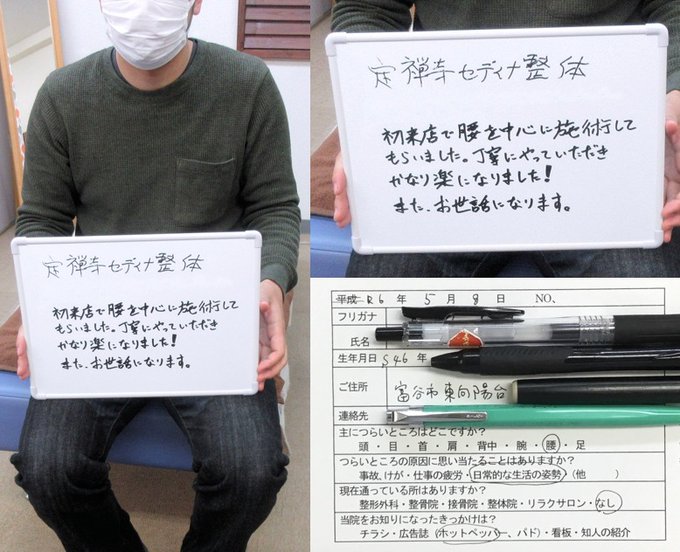 定禅寺セディナ整体
初来店で腰を中心に施術して
もらいました。丁寧にやっていただき
かなり楽になりました!
また、お世話になります。
定禅寺セディナ整体
初来店で腰を中心に施術して
もらいました。丁寧にやっていただき
かなり楽になりました!
また、お世話になります。
平成 R6 年 5 月 8 日 NO、
フリガナ
氏名
生年月日 S46 年
ご住所 富谷市東向陽台
連絡先
主につらいところはどこですか?
頭・目・首・肩・背中・腕・腰・足
つらいところの原因に思い当たることはありますか?
事故、けが・仕事の疲労・日常的な生活の姿勢 (他 )
現在通っている所はありますか?
整形外科・整骨院・接骨院・整体院・リラクサロン・なし
当院をお知りになったきっかけは?
チラシ・広告誌(ホットペッパー、パド)・看板・知人の紹介